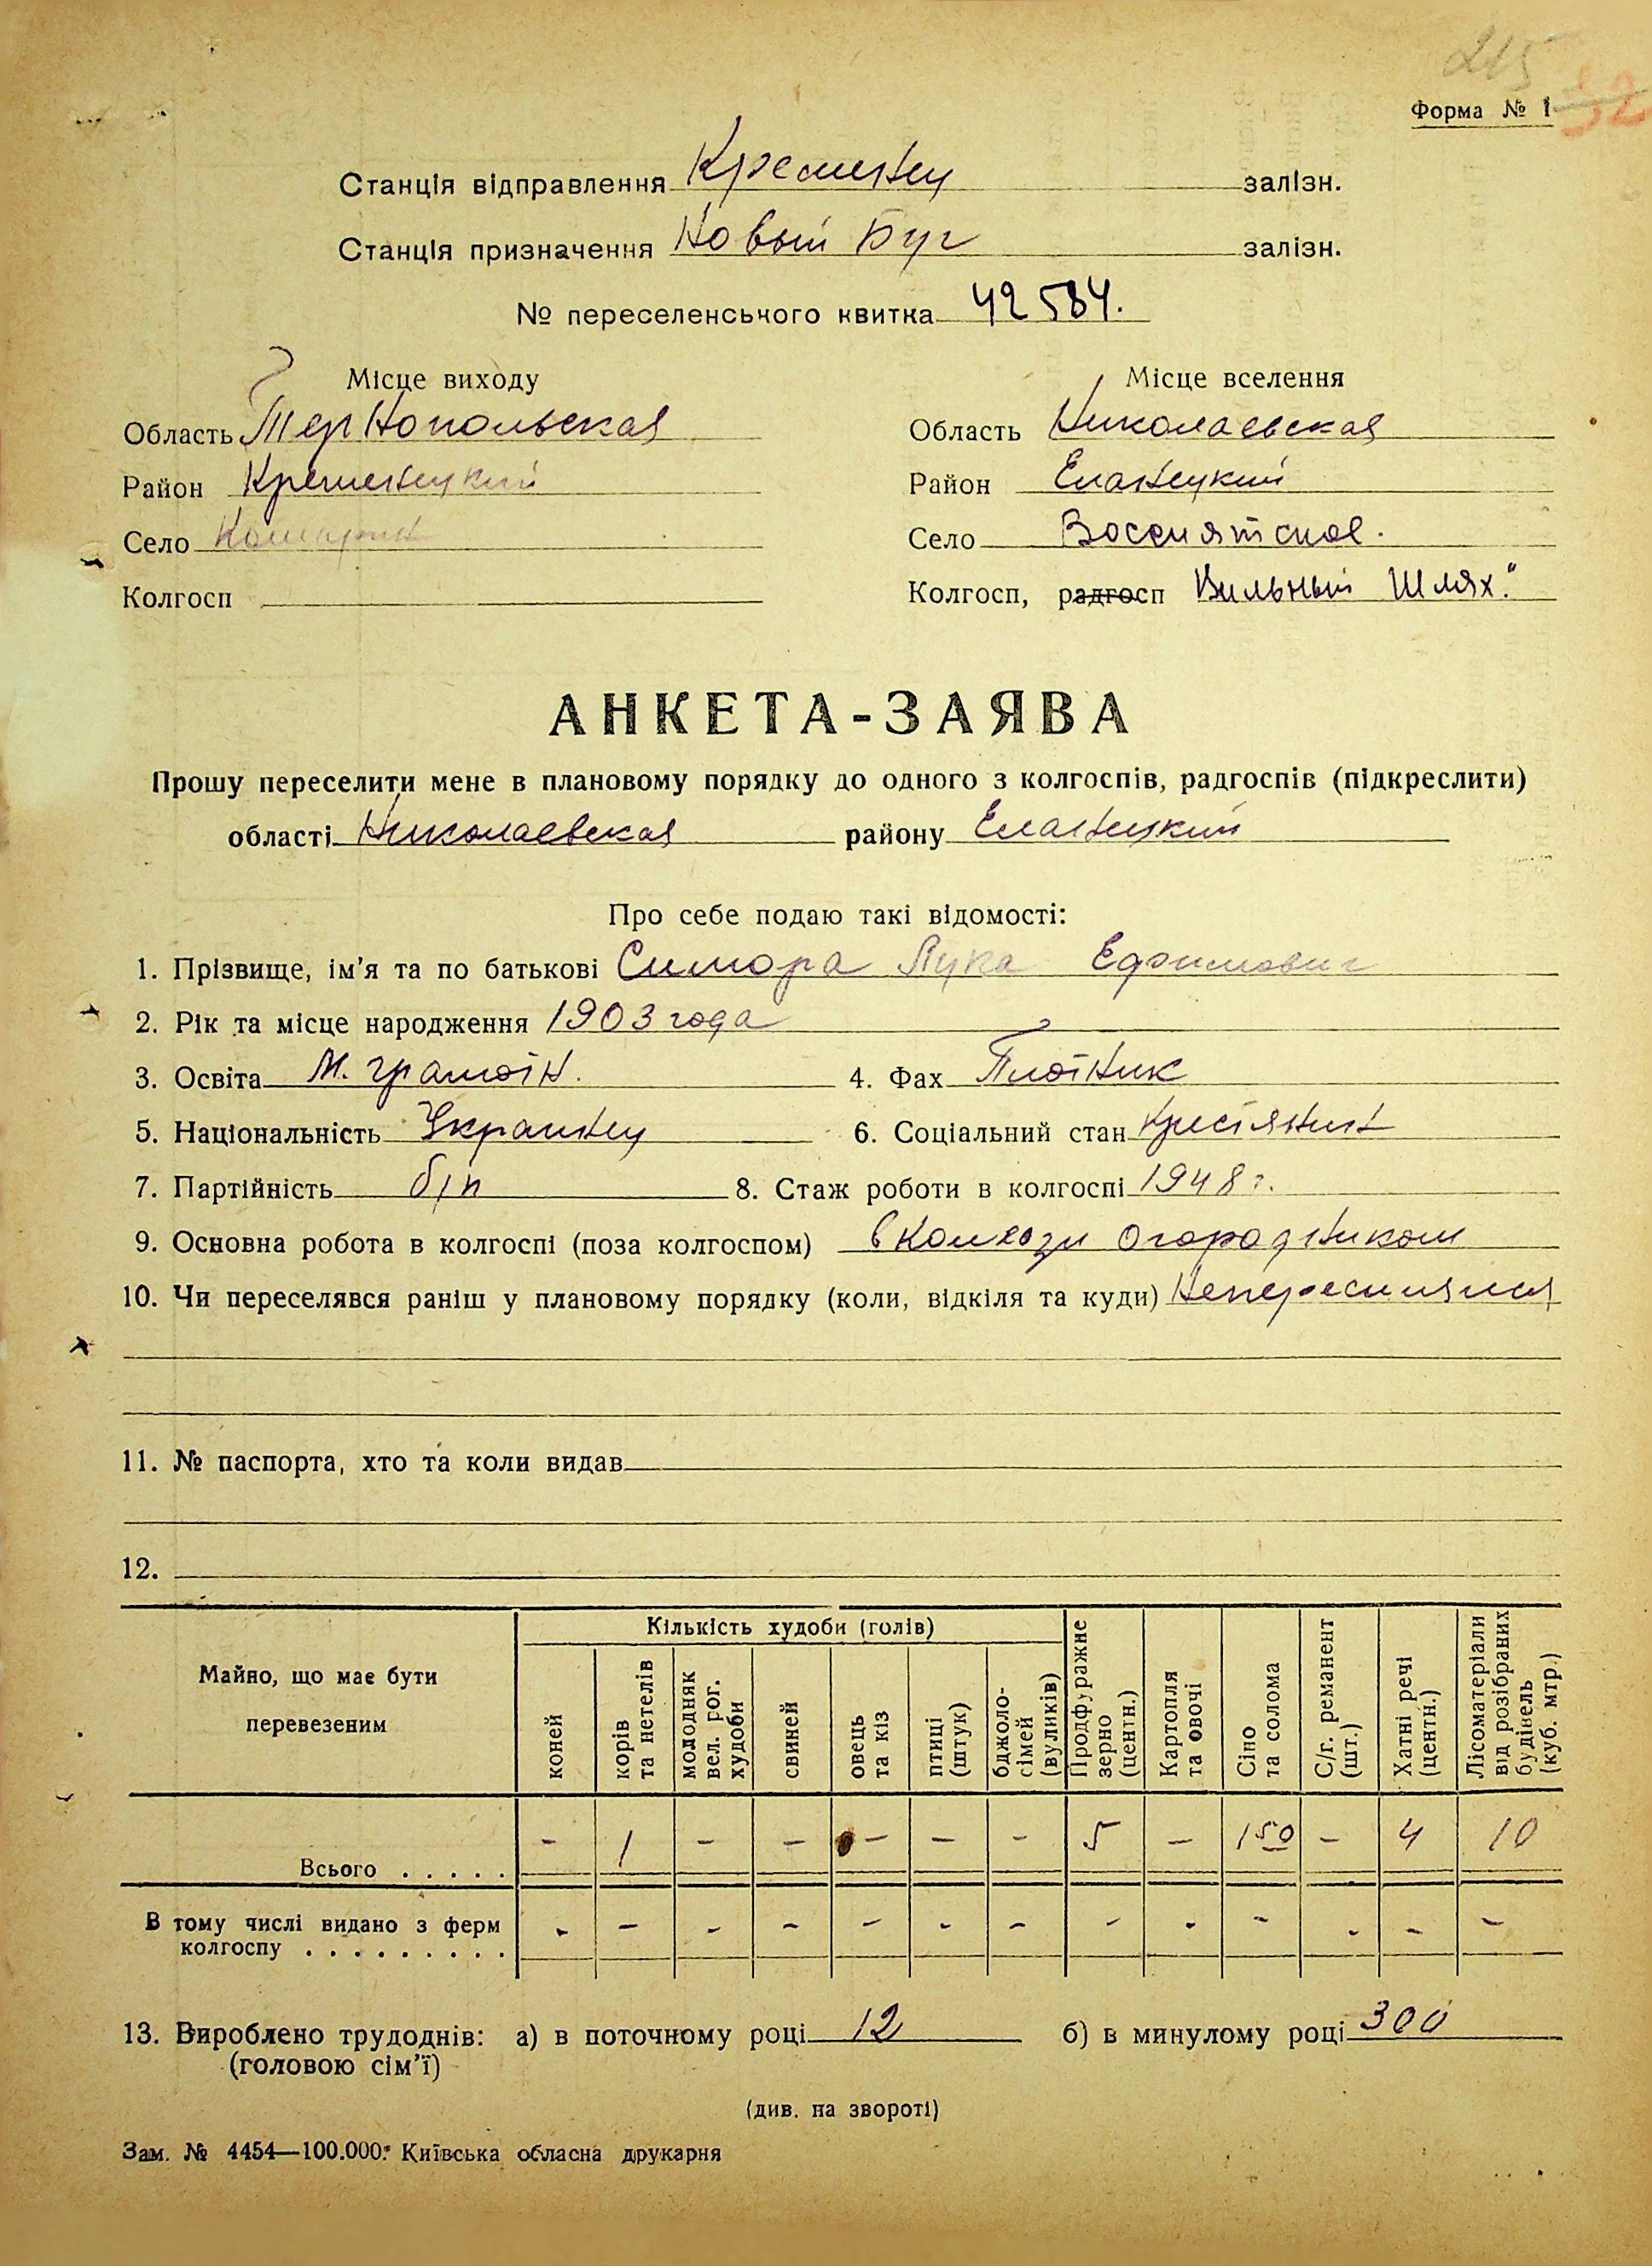 215
32
Форма № 1
Станція відправлення Кременец залізн.
Станція призначення Новый Буг залізн.
№ переселенського квитка 42584.
Місце виходу Місце вселення
Область Тернопольская Область Николаевская
Район Кременецкий Район Еланецкий
Село Село Воссиятское.
Колгосп Колгосп, радгосп Вильный Шлях."
АНКЕТА-ЗАЯВА
Прошу переселити мене в плановому порядку до одного з колгоспів, радгоспів (підкреслити)
області Николаевская району Еланецкий
Про себе подаю такі відомості:
1. Прізвище, ім'я та по батькові Симора Лука Ефимович
2. Рік та місце народження 1903 года
3. Освіта М. грамотн. 4. Фах Плотник
5. Національність Украинец 6. Соціальний стан
7. Партійність б/п 8. Стаж роботи в колгоспі 1948 г.
9. Основна робота в колгоспі (поза колгоспом) в Колхози огородником
10. Чи переселявся раніш у плановому порядку (коли, відкіля та куди)
11. № паспорта, хто та коли видав
12.
Майно, що має бути перевезеним
Кількість худоби (голів)
коней
корів та нетелів
молодняк вел. рог. худоби
свиней
овець та кіз
птиці (штук)
бджоло-сімей (вуликів)
Продфуражне зерно (центн.)
Картопля та овочі
Сіно та солома
С/г. реманент (шт.)
Хатні речі (центн.)
Лісоматеріали від розібраних будівель (куб. мтр.)
Всього . . . . . - 1 - - - - - 5 - 150 - 4 10
В тому числі видано з ферм
колгоспу . . . . . . . . . - - - - - - - - - - - - -
13. Вироблено трудоднів: а) в поточному році 12 б) в минулому році 300
(головою сім'ї)
(див. на звороті)
Зам. № 4454—100.000. Київська обласна друкарня